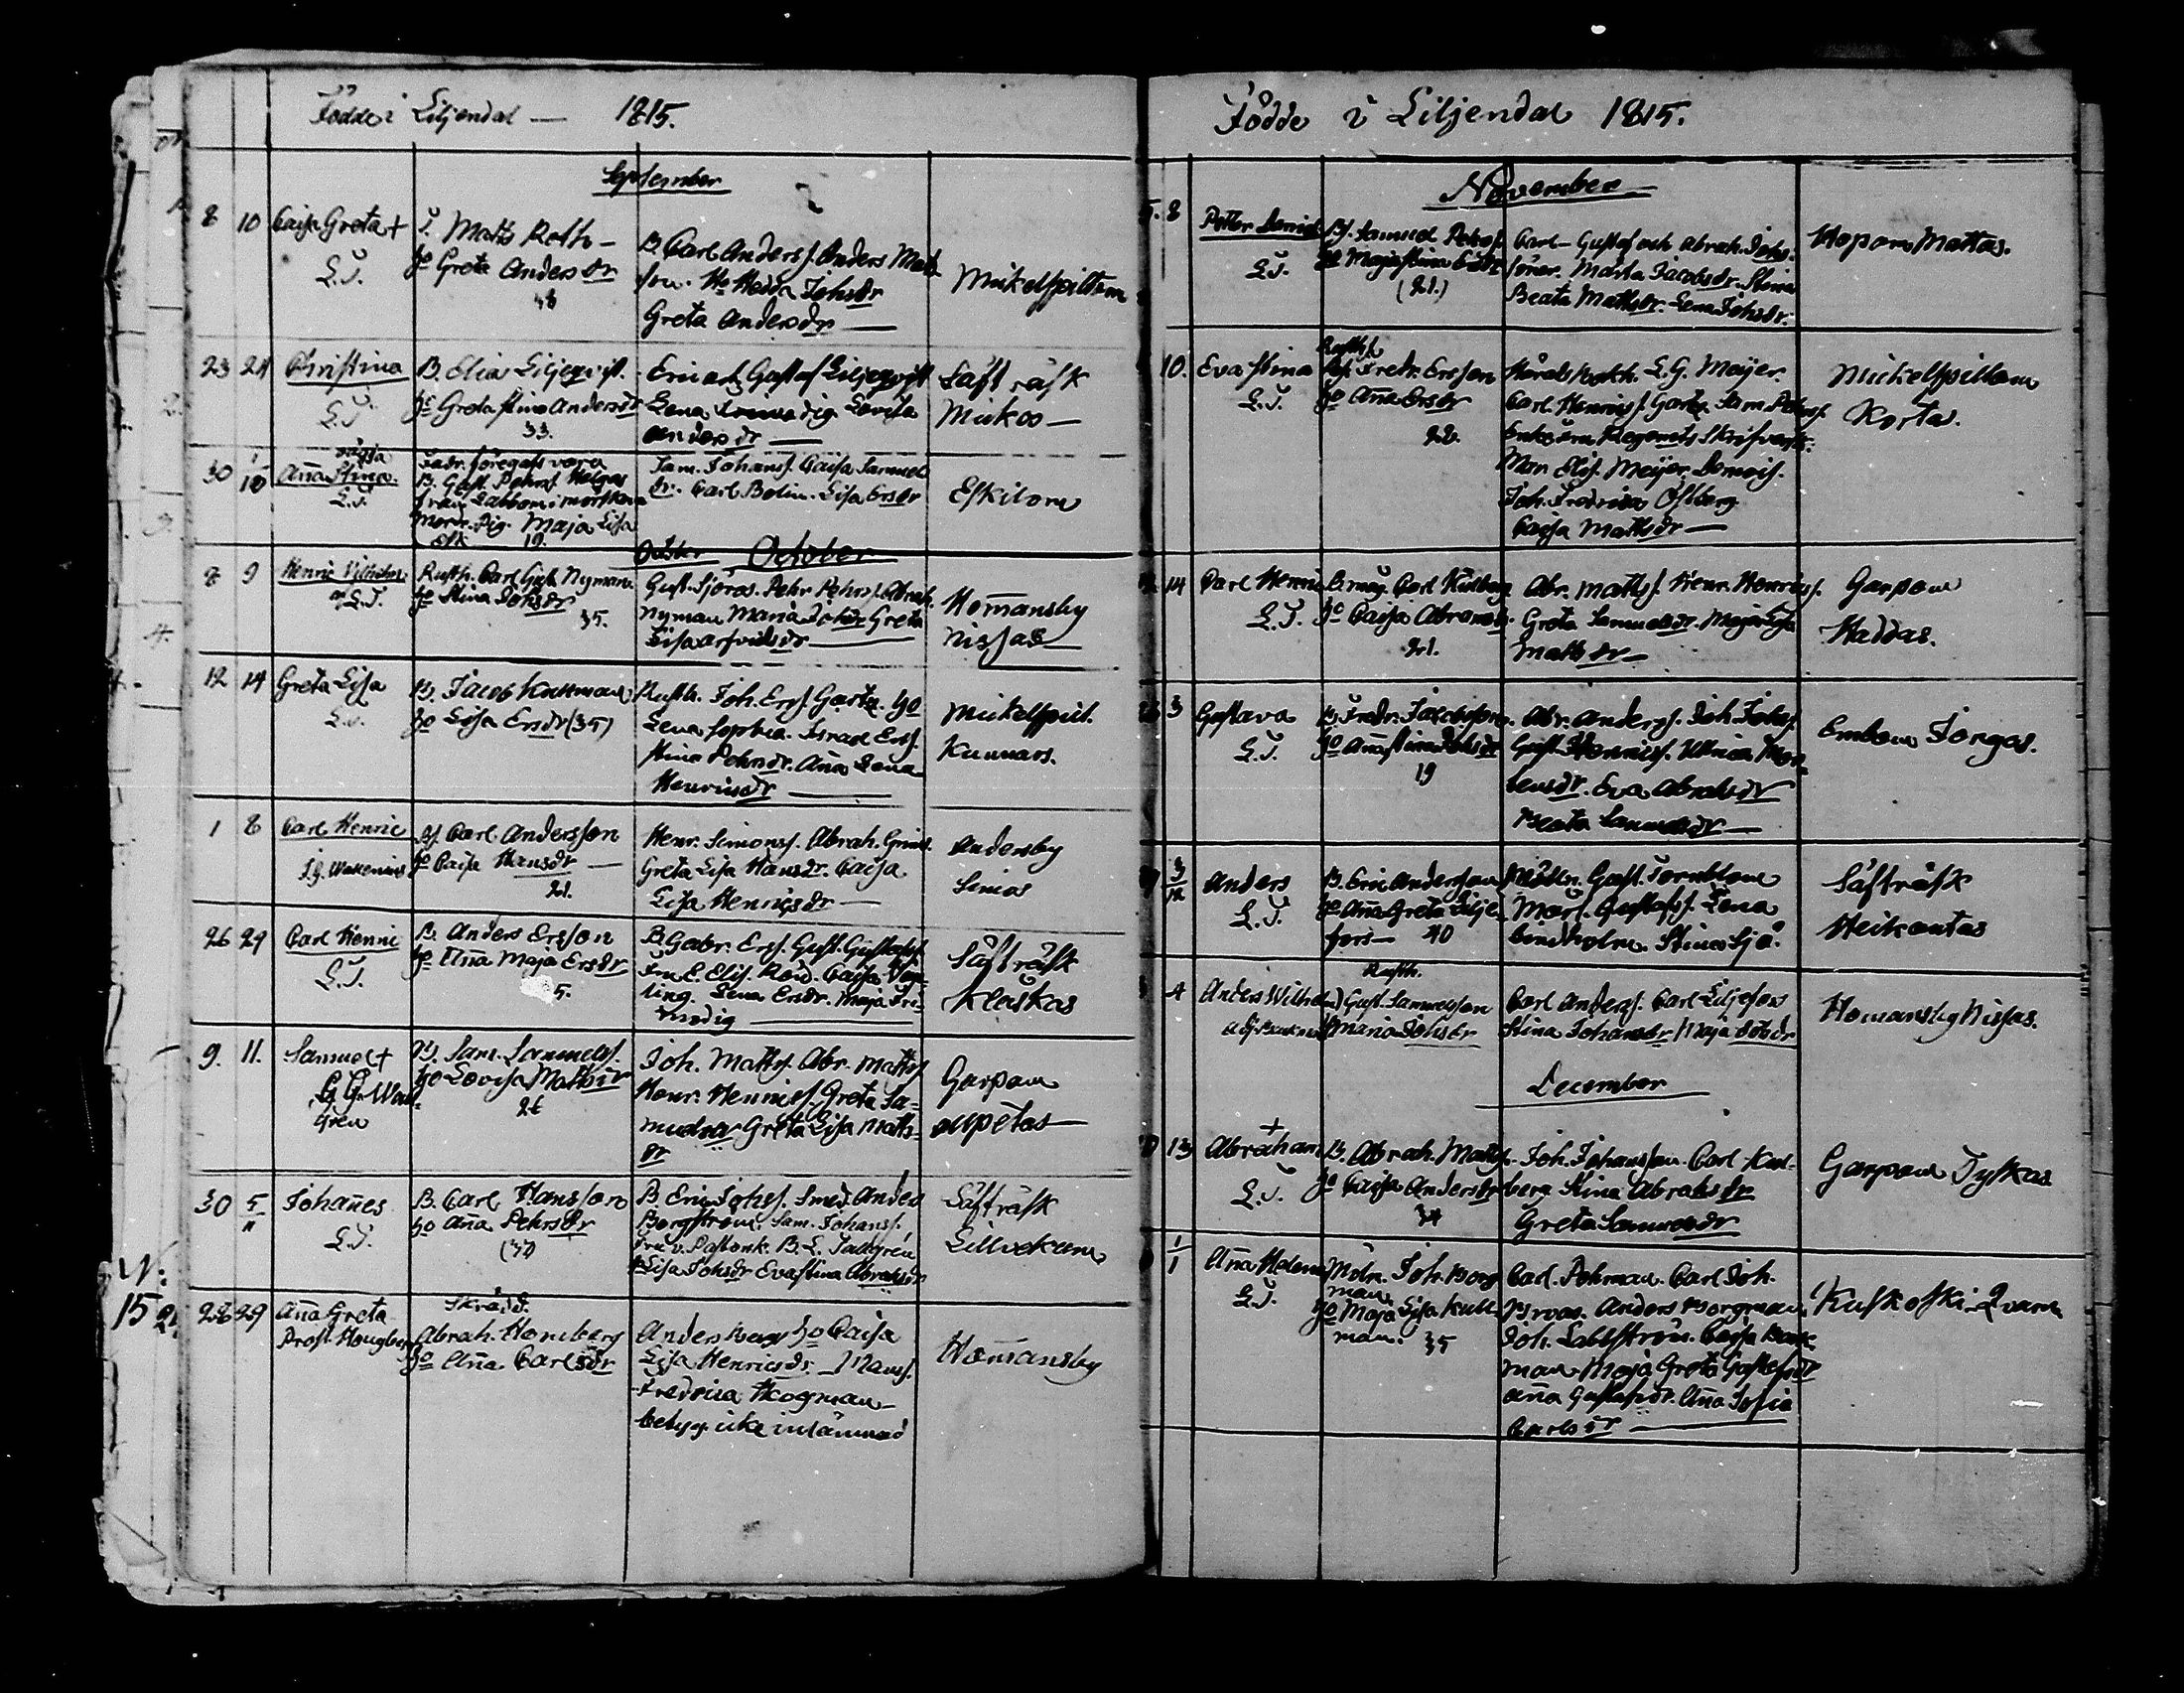 Födde i Liljendal — 1815.
September
8 10 Caisa Greta +
L.T.
T. Matts Roth —
ho Greta Andersdr
B. Carl Anders f. Anders Mats
ho Hedda Johsdr
Greta Andersdr —
Mickelspiltom
23 24 Christina
L.T.
B. Elias Liljeqvist.
ho Greta Stina Andersdr
33.
Eric och Gustaf Liljeqvist
Lena Lovisa
Andersdr —
Säfträsk
Mickos —
30 1/10 oägta
Anna Stina.
L.T.
Fadr. föregafs vara
B. Gust. Pehrsf. Helgas
från Labbom i
Modr. Pig. Maja Lisa
19.
Sam. Johansf. Caisa Samuels
dr. Carl Bolin. Lisa Ersdr
Eskilom
October
8 9 Henric Vilhelm
L.T.
Rusth. Carl Gust. Nyman.
ho Stina Johsdr
35.
Gust. Sjöros. Pehr Pehrsf. Abrah.
Nyman Maria Johsdr Greta
Lisa Arfvidsdr —
Hom̄ansby
Nissas —
12 14 Greta Lisa
L.T.
B. Jacob Kullman
ho Lisa Ersdr (35)
Rustm. Joh. Ersf. Gartz. ho
Lena Sophia. Israel Ersf.
Stina Pehrsdr. Anna Lena
Henricsdr —
Mickelspilt.
Kunnars.
1 8 Carl Henric
J.G. Wallenius
B. Carl Andersson
ho Caisa Hansdr —
21.
Henr. Simonsf. Abrah.
Greta Lisa Hansdr. Caisa
Lisa Henricsdr —
Andersby
Simos
26 29 Carl Henric
L.T.
B. Anders Ersson
ho Anna Maja Ersdr
5.
B. Gabr. Ersf. Gust. Gustafsf.
E. Elis. Caisa
ling. Lena Ersdr. Maja Fri-
modig —
Säfträsk
Klaskas
9. 11. Samuel +
G. G. Wad-
gren
B. Sam. Samuelsf.
ho Lovisa Mattsdr
26
Joh. Mattsf. Abr. Mattsf
Henr. Henricsf. Greta Sa-
muelsdr Greta Lisa Matts-
dr
Garpom
30 5/11 Johan̄es
L.T.
B. Carl Hansson
ho An̄a Pehrsdr
(37)
B. Eric Johsf. Smed. Anders
Borgström. Sam. Johansf.
B. L. Tallgren
Lisa Johsdr Eva Stina Abrahsdr
Säfträsk
Lillvekom
N:
15 28 29 An̄a Greta
Prost. Hougberg
Skrädd.
Abrah. Homberg
ho An̄a Carlsdr
Anders Berg ho Caisa
Lisa Henricsdr. Mamf.
Fredrica Hogman
betyg icke inlämnad
Hom̄ansby
Födde i Liljendal 1815.
November
5. 8 Petter Daniel
L.T.
B. Samuel Pehrsf
ho Maja Stina Ersdr
(21.)
Carl — Gustaf och Abrah. Johs.
söner. Maria Jacobsdr. Stina
Beata Mattsdr. Lena Johsdr.
Hopom Mattas.
10. Eva Stina
L.T.
Rusthf.
Fredr. Ersson
ho An̄a Ersdr
22.
Härads Bokh. L. G. Meijer.
Carl Henricsf. Gartz. Sam. Pehrsf.
Enkefru Regements Skrifvarfr.
Mar. Elis. Meijer. Demois.
Joh. Fredrica Östberg
Caisa Mattsdr —
Mickelspiltom
Korta.
14 Carl Henric
L.T.
B. mog Carl Kullberg
ho Caisa Abramsdr
21.
Abr. Mattsf. Henr. Henricsf.
Greta Samuelsdr. Maja Lisa
Mattsdr —
Garpom
Haddas.
3 Gustava
L.T.
B. Fredr. Jacobsson.
ho An̄a Stina Johsdr
19
Abr. Andersf. Joh. Johsf
Gust. Henricsf. Ulrica Mor-
tensdr. Eva Abrahsdr
Beata Samuelsdr —
Embom Jorgas.
3/12 Anders
L.T.
B. Eric Andersson
ho An̄a Greta Lilje
fors — 40
Mölln. Gust. Törnblom
Mart. Gustafsf. Lena
Lindholm. Stina Sjö.
Säfträsk
Heikantas
4 Anders Wilhelm
Rusth.
Gust. Samuelsson
Maria Johsdr
Carl Andersf. Carl Liljefors
Stina Johansdr Maja dotdr
Homansby Nissas.
December
13 + Abraham
L.T.
B. Abrah. Mattsf.
ho Caisa Andersdr
34
Joh. Johansson. Carl Kul-
berg Stina Abrahsdr
Greta Samuelsdr
Garpom Tyskas
1/1 An̄a Helena
L.T.
Möln. Joh. Borg
man
ho Maja Lisa Kull-
man. 35
Carl Pehrman. Carl Joh.
Broas. Anders Borgman
Joh. Labbström. Caisa Borg-
man Maja Greta Gustafsdr
An̄a Gustafsdr. An̄a Sofia
Carlsdr —
Kuskoski Qvarn